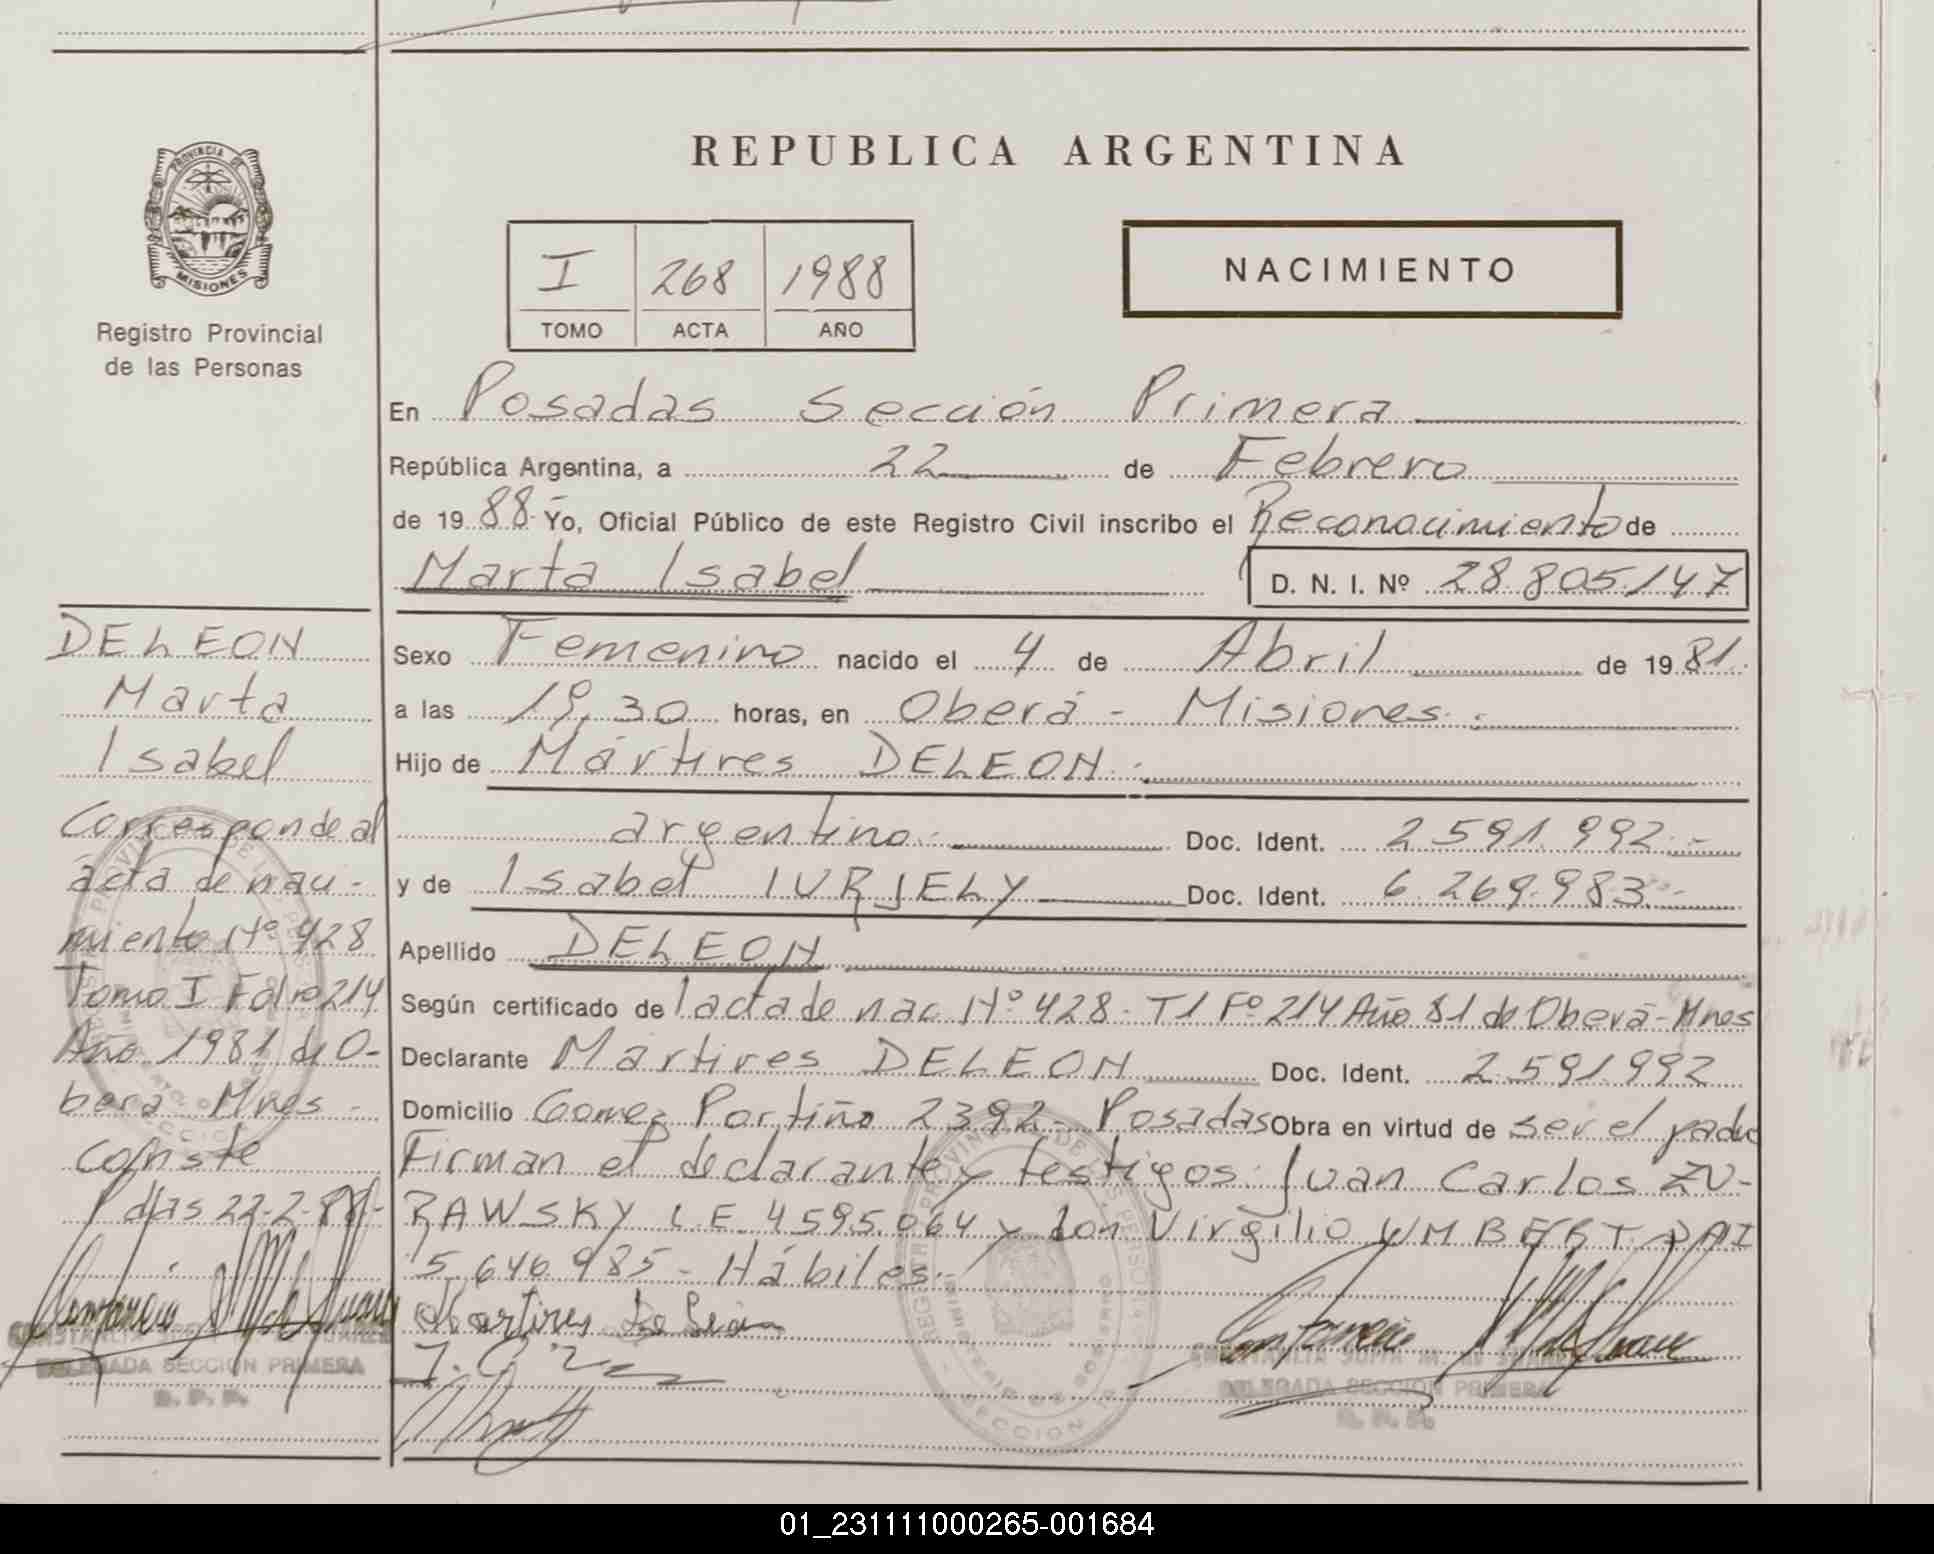 REPUBLICA ARGENTINA
PROVINCIA DE
MISIONES
Registro Provincial
de las Personas
I 268 1988
TOMO ACTA AÑO
NACIMIENTO
En Posadas Sección Primera
República Argentina, a 22 de Febrero
de 1988 Yo, Oficial Público de este Registro Civil inscribo el Reconocimiento de
Marta Isabel D. N. I. Nº 28.805.147
Sexo Femenino nacido el 4 de Abril de 1981.
a las 19,30 horas, en Oberá - Misiones.
Hijo de Mártires DELEON.
argentino. Doc. Ident. 2.591.992.-
y de Isabel IURJELY Doc. Ident. 6.269.983.-
Apellido DELEON
Según certificado de l acta de nac Nº 428- T1 Fº 214 Año 81 de Oberá-Mnes
Declarante Martires DELEON Doc. Ident. 2.591.992
Domicilio Gomez Portiño 2392- Posadas Obra en virtud de ser el padre
Firman el declarante y testigos: Juan Carlos ZU-
RAWSKY L.E. 4.595.064 y don Virgilio UMBERT DAI
5.646.985- Hábiles.
Martires De León
DELEON
Marta
Isabel
Corresponde al
acta de naci-
miento Nº 428
Tomo I Folio 214
Año 1981 de O-
bera Mnes-
Conste
Pdas 22-2-88-
DELEGADA SECCION PRIMERA
R. P. P.
DELEGADA SECCION PRIMERA
R. P. P.
01_231111000265-001684